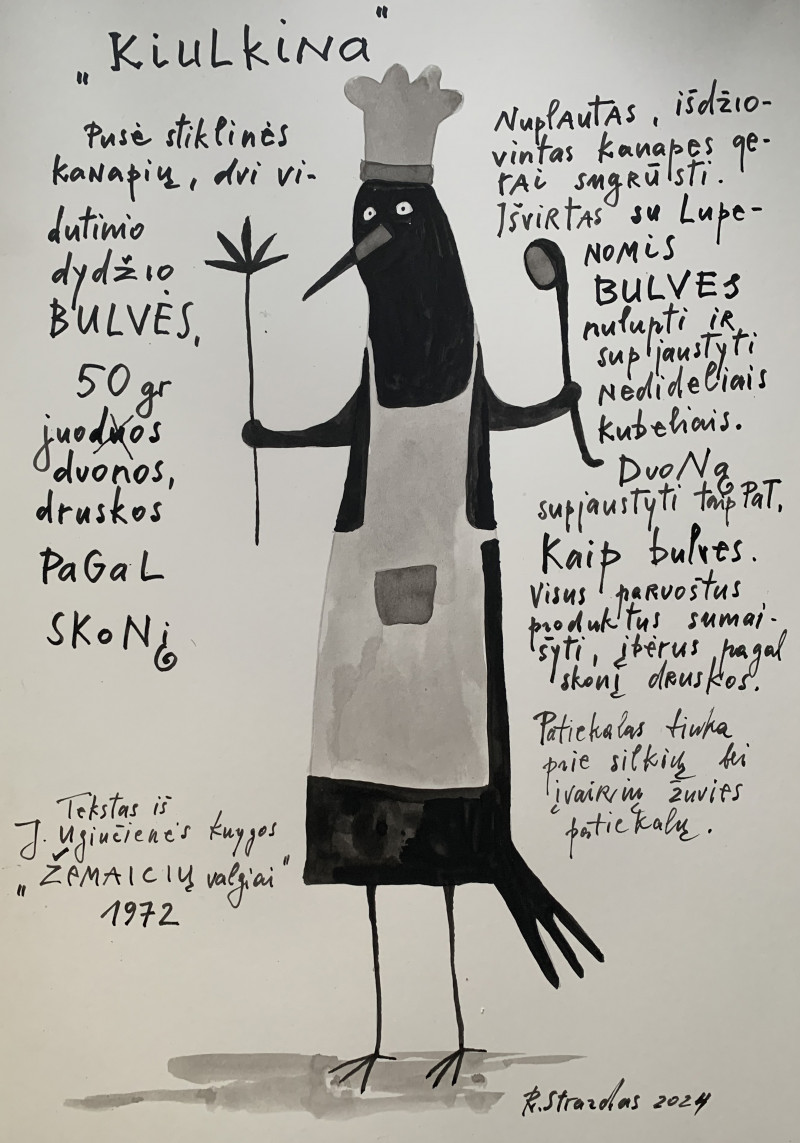 „Kiulkina"
Pusė stiklinės
kanapių, dvi vi-
dutinio
dydžio
BULVĖS,
50 gr
juoduos
duonos,
druskos
PaGaL
SKoNį
Tekstas iš
J. Uginčienės knygos
„ŽEMAIČIŲ valgiai"
1972
NuplAutAs, išdžio-
vintas kanapes ge-
rAi sugrūsti.
IŠvirtas su Lupe-
NOMIS
BULVES
nulupti iR
supjaustyti
Nedideliais
kubeliais.
DuoNą
supjaustyti taip PaT,
Kaip bulves.
Visus paruoštus
produktus sumai-
šyti, įbėrus pagal
skonį druskos.
Patiekalas tinka
prie silkių bei
įvaiRių žuvies
patiekalų.
R. Strazdas 2024